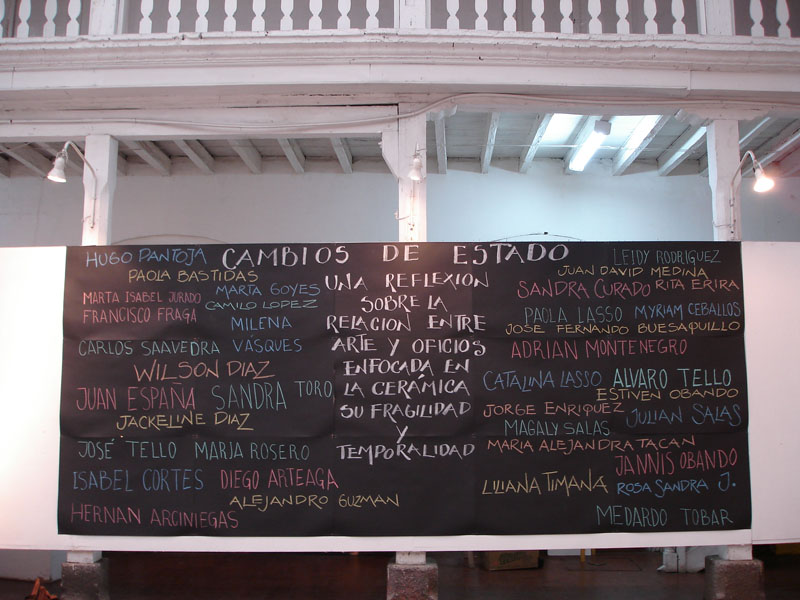 CAMBIOS DE ESTADO
UNA REFLEXION
SOBRE LA
RELACION ENTRE
ARTE Y OFICIOS
ENFOCADA EN
LA CERÁMICA
SU FRAGILIDAD
Y
TEMPORALIDAD
HUGO PANTOJA
PAOLA BASTIDAS
MARTA ISABEL JURADO
MARTA GOYES
FRANCISCO FRAGA
CAMILO LOPEZ
MILENA
VÁSQUES
CARLOS SAAVEDRA
WILSON DIAZ
JUAN ESPAÑA
SANDRA TORO
JACKELINE DIAZ
JOSÉ TELLO
MARJA ROSERO
ISABEL CORTES
DIEGO ARTEAGA
ALEJANDRO GUZMAN
HERNAN ARCINIEGAS
LEIDY RODRIGUEZ
JUAN DAVID MEDINA
SANDRA CURADO
RITA ERIRA
PAOLA LASSO
MYRIAM CEBALLOS
JOSE FERNANDO BUESAQUILLO
ADRIAN MONTENEGRO
CATALINA LASSO
ALVARO TELLO
ESTIVEN OBANDO
JORGE ENRIQUEZ
JULIAN SALAS
MAGALY SALAS
MARIA ALEJANDRA TACAN
JANNIS OBANDO
LILIANA TIMANA
ROSA SANDRA J.
MEDARDO TOBAR